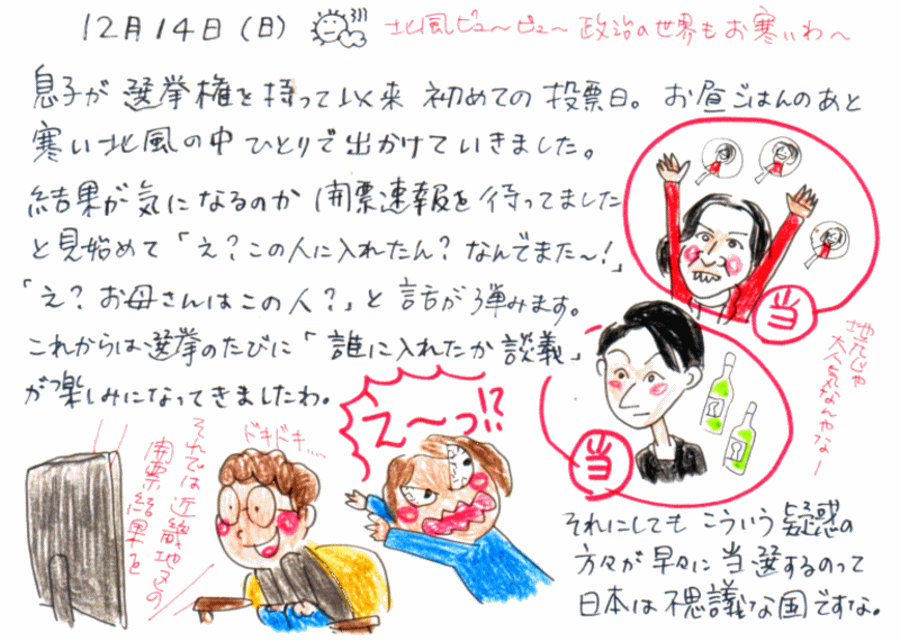 12月14日（日） 北風ピュ〜ピュ〜 政治の世界もお寒いわ〜
息子が選挙権を持って以来 初めての投票日。 お昼ごはんのあと
寒い北風の中 ひとりで出かけていきました。
結果が気になるのか 開票速報を待ってました
と見始めて「え？この人に入れたん？ なんでまた〜！」
「え？ お母さんはこの人？」と 話が弾みます。
これからは選挙のたびに「誰に入れたか 談義」
が楽しみになってきましたわ。
当
地元じゃ
大人気なんやなー
当
え〜っ!?
ドキドキ…
それでは近畿地区の
開票結果を
それにしても こういう疑惑の
方々が 早々に 当選するのって
日本は不思議な国ですな。